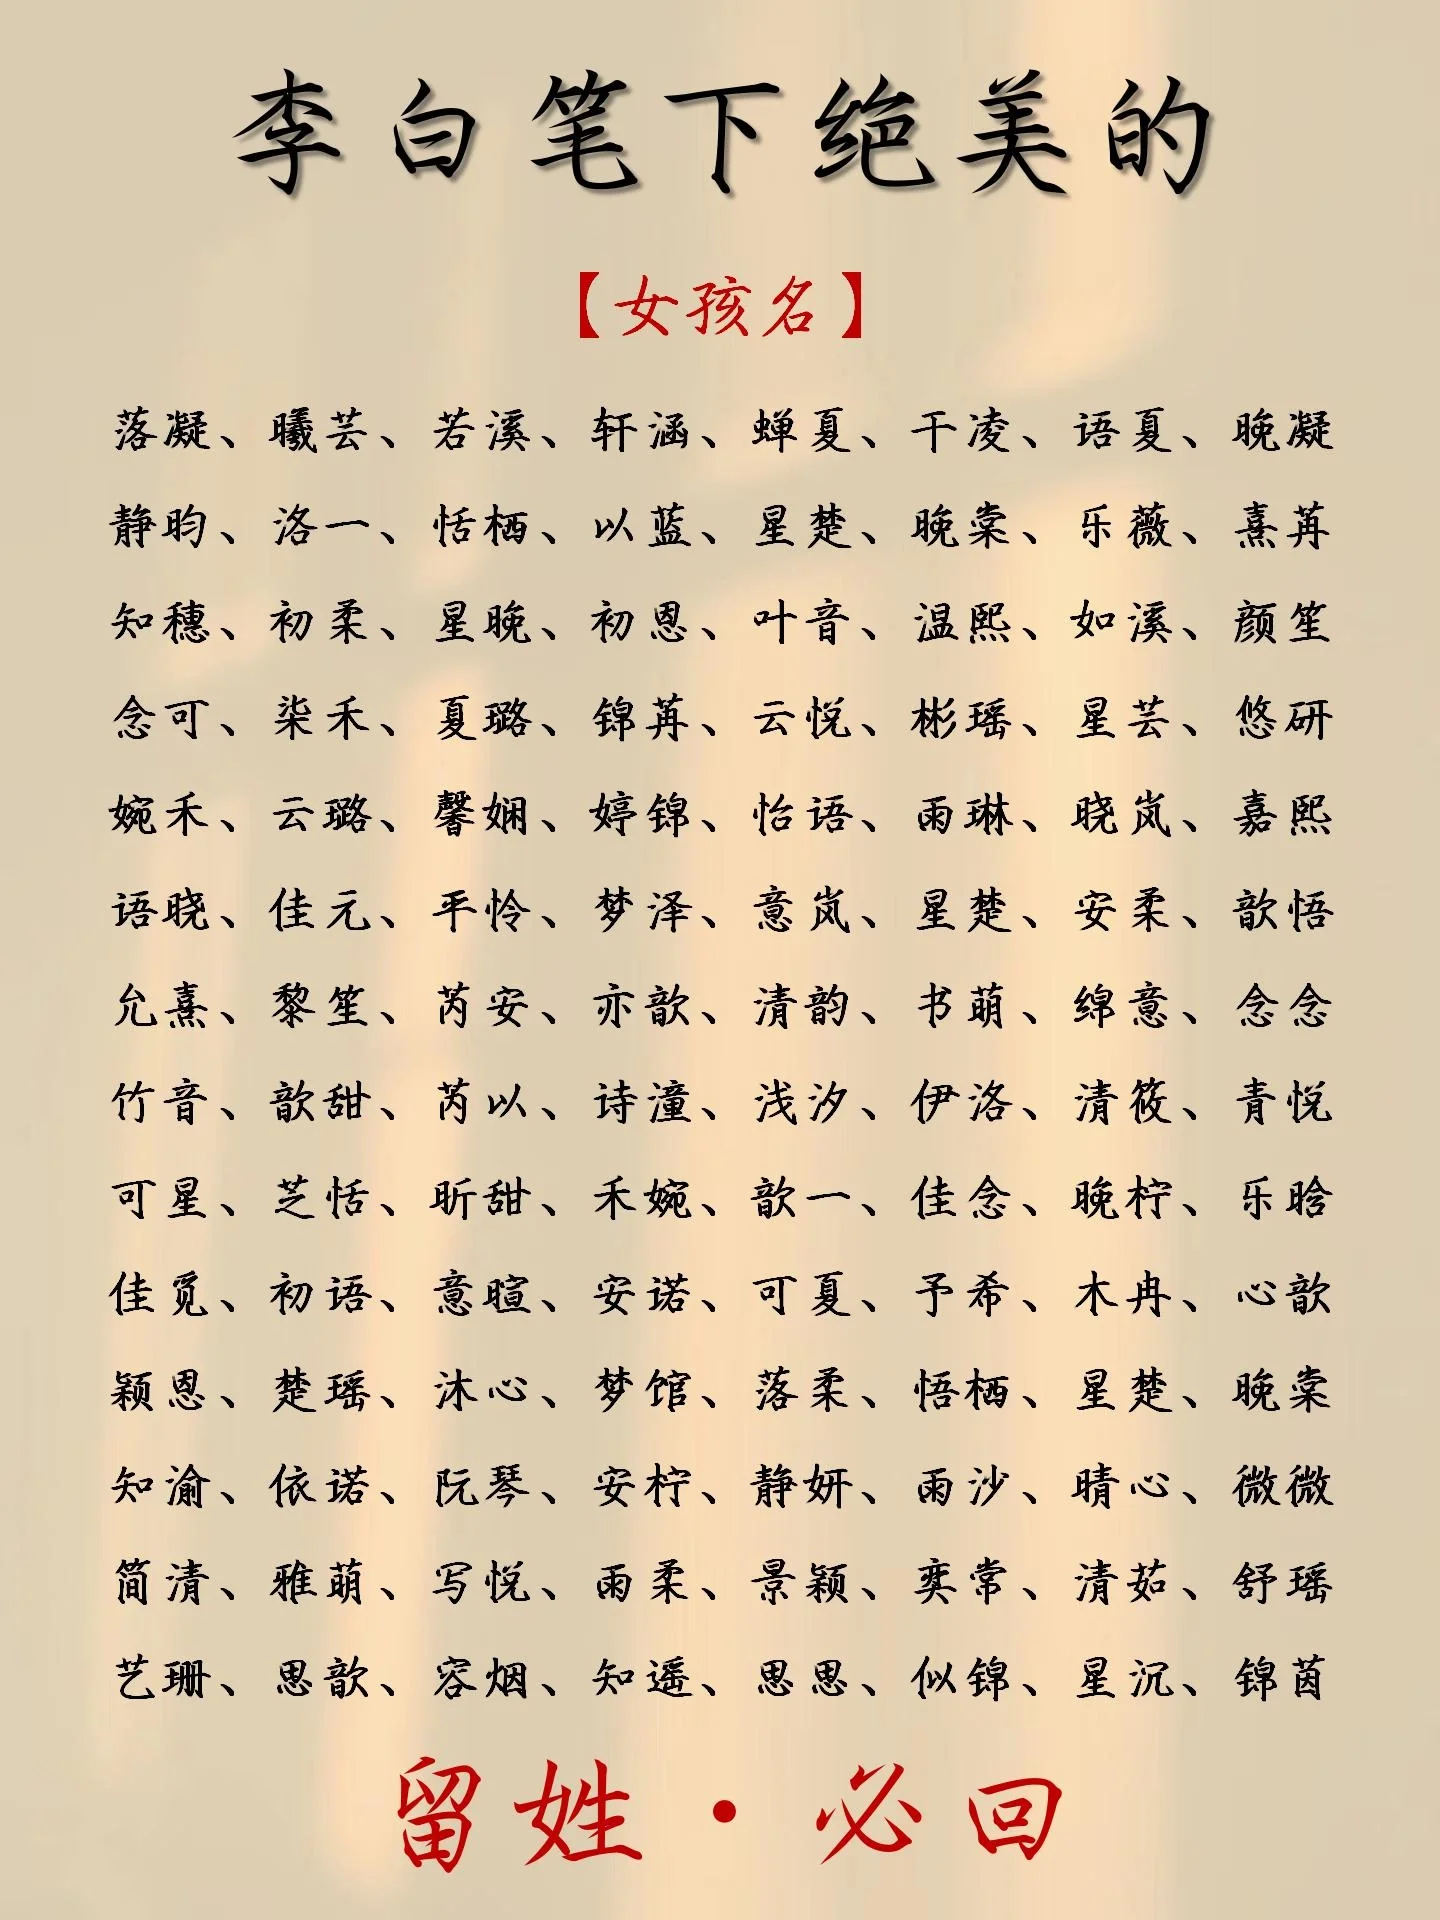 李白笔下绝美的
【女孩名】
落凝、曦芸、若溪、轩涵、蝉夏、干凌、语夏、晚凝
静昀、洛一、恬栖、以蓝、星楚、晚棠、乐薇、熹苒
知穗、初柔、星晚、初恩、叶音、温熙、如溪、颜笙
念可、柒禾、夏璐、锦苒、云悦、彬瑶、星芸、悠研
婉禾、云璐、馨娴、婷锦、怡语、雨琳、晓岚、嘉熙
语晓、佳元、平怜、梦泽、意岚、星楚、安柔、歆悟
允熹、黎笙、芮安、亦歆、清韵、书萌、绵意、念念
竹音、歆甜、芮以、诗潼、浅汐、伊洛、清筱、青悦
可星、芝恬、昕甜、禾婉、歆一、佳念、晚柠、乐晗
佳觅、初语、意暄、安诺、可夏、予希、木冉、心歆
颖恩、楚瑶、沐心、梦馆、落柔、悟栖、星楚、晚棠
知渝、依诺、阮琴、安柠、静妍、雨沙、晴心、微微
简清、雅萌、写悦、雨柔、景颖、奕常、清茹、舒瑶
艺珊、思歆、容烟、知遥、思思、似锦、星沉、锦茵
留姓·必回